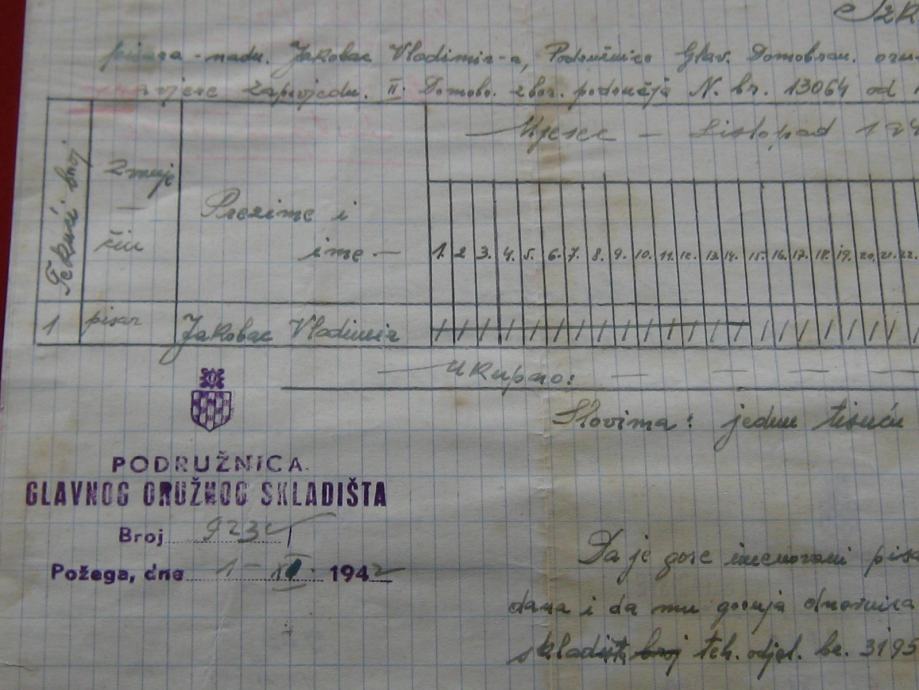 pisara - nadn. Jakobac Vladimir-a, Područnice Glav. Domobran. oruž
zapovjedn. II Domobr. zbor. područja N. br. 13064 od
Tekući broj
Prezime i
ime -
Mjesec - Listopad 194
1. 2 3. 4. 5. 6. 7. 8. 9. 10. 11. 12. 13. 14. 15. 16. 17. 18. 19. 20. 21. 22.
1 pisar Jakobac Vladimir / / / / / / / / / / / / / / / / / / / / /
Ukupno:
Slovima: jednu tisuću
PODRUŽNICA
GLAVNOG ORUŽNOG SKLADIŠTA
Broj 923
Požega, dne 1 - XI. 1942
Da je gore imenovani pisa
dana i da mu gornja
skladišta broj teh. odjel. br. 3195